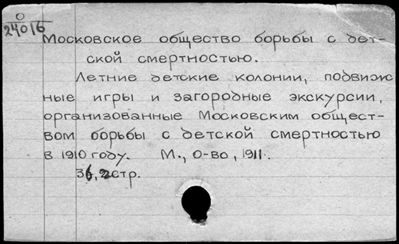 О
24016
Московское общество борьбы с дет-
ской смертностью.
Летние детские колонии, подвиж-
ные игры и загородные экскурсии,
организованные Московским общест-
вом борьбы с детской смертностью
в 1910 году. М., О-во, 1911.
36, 2стр.